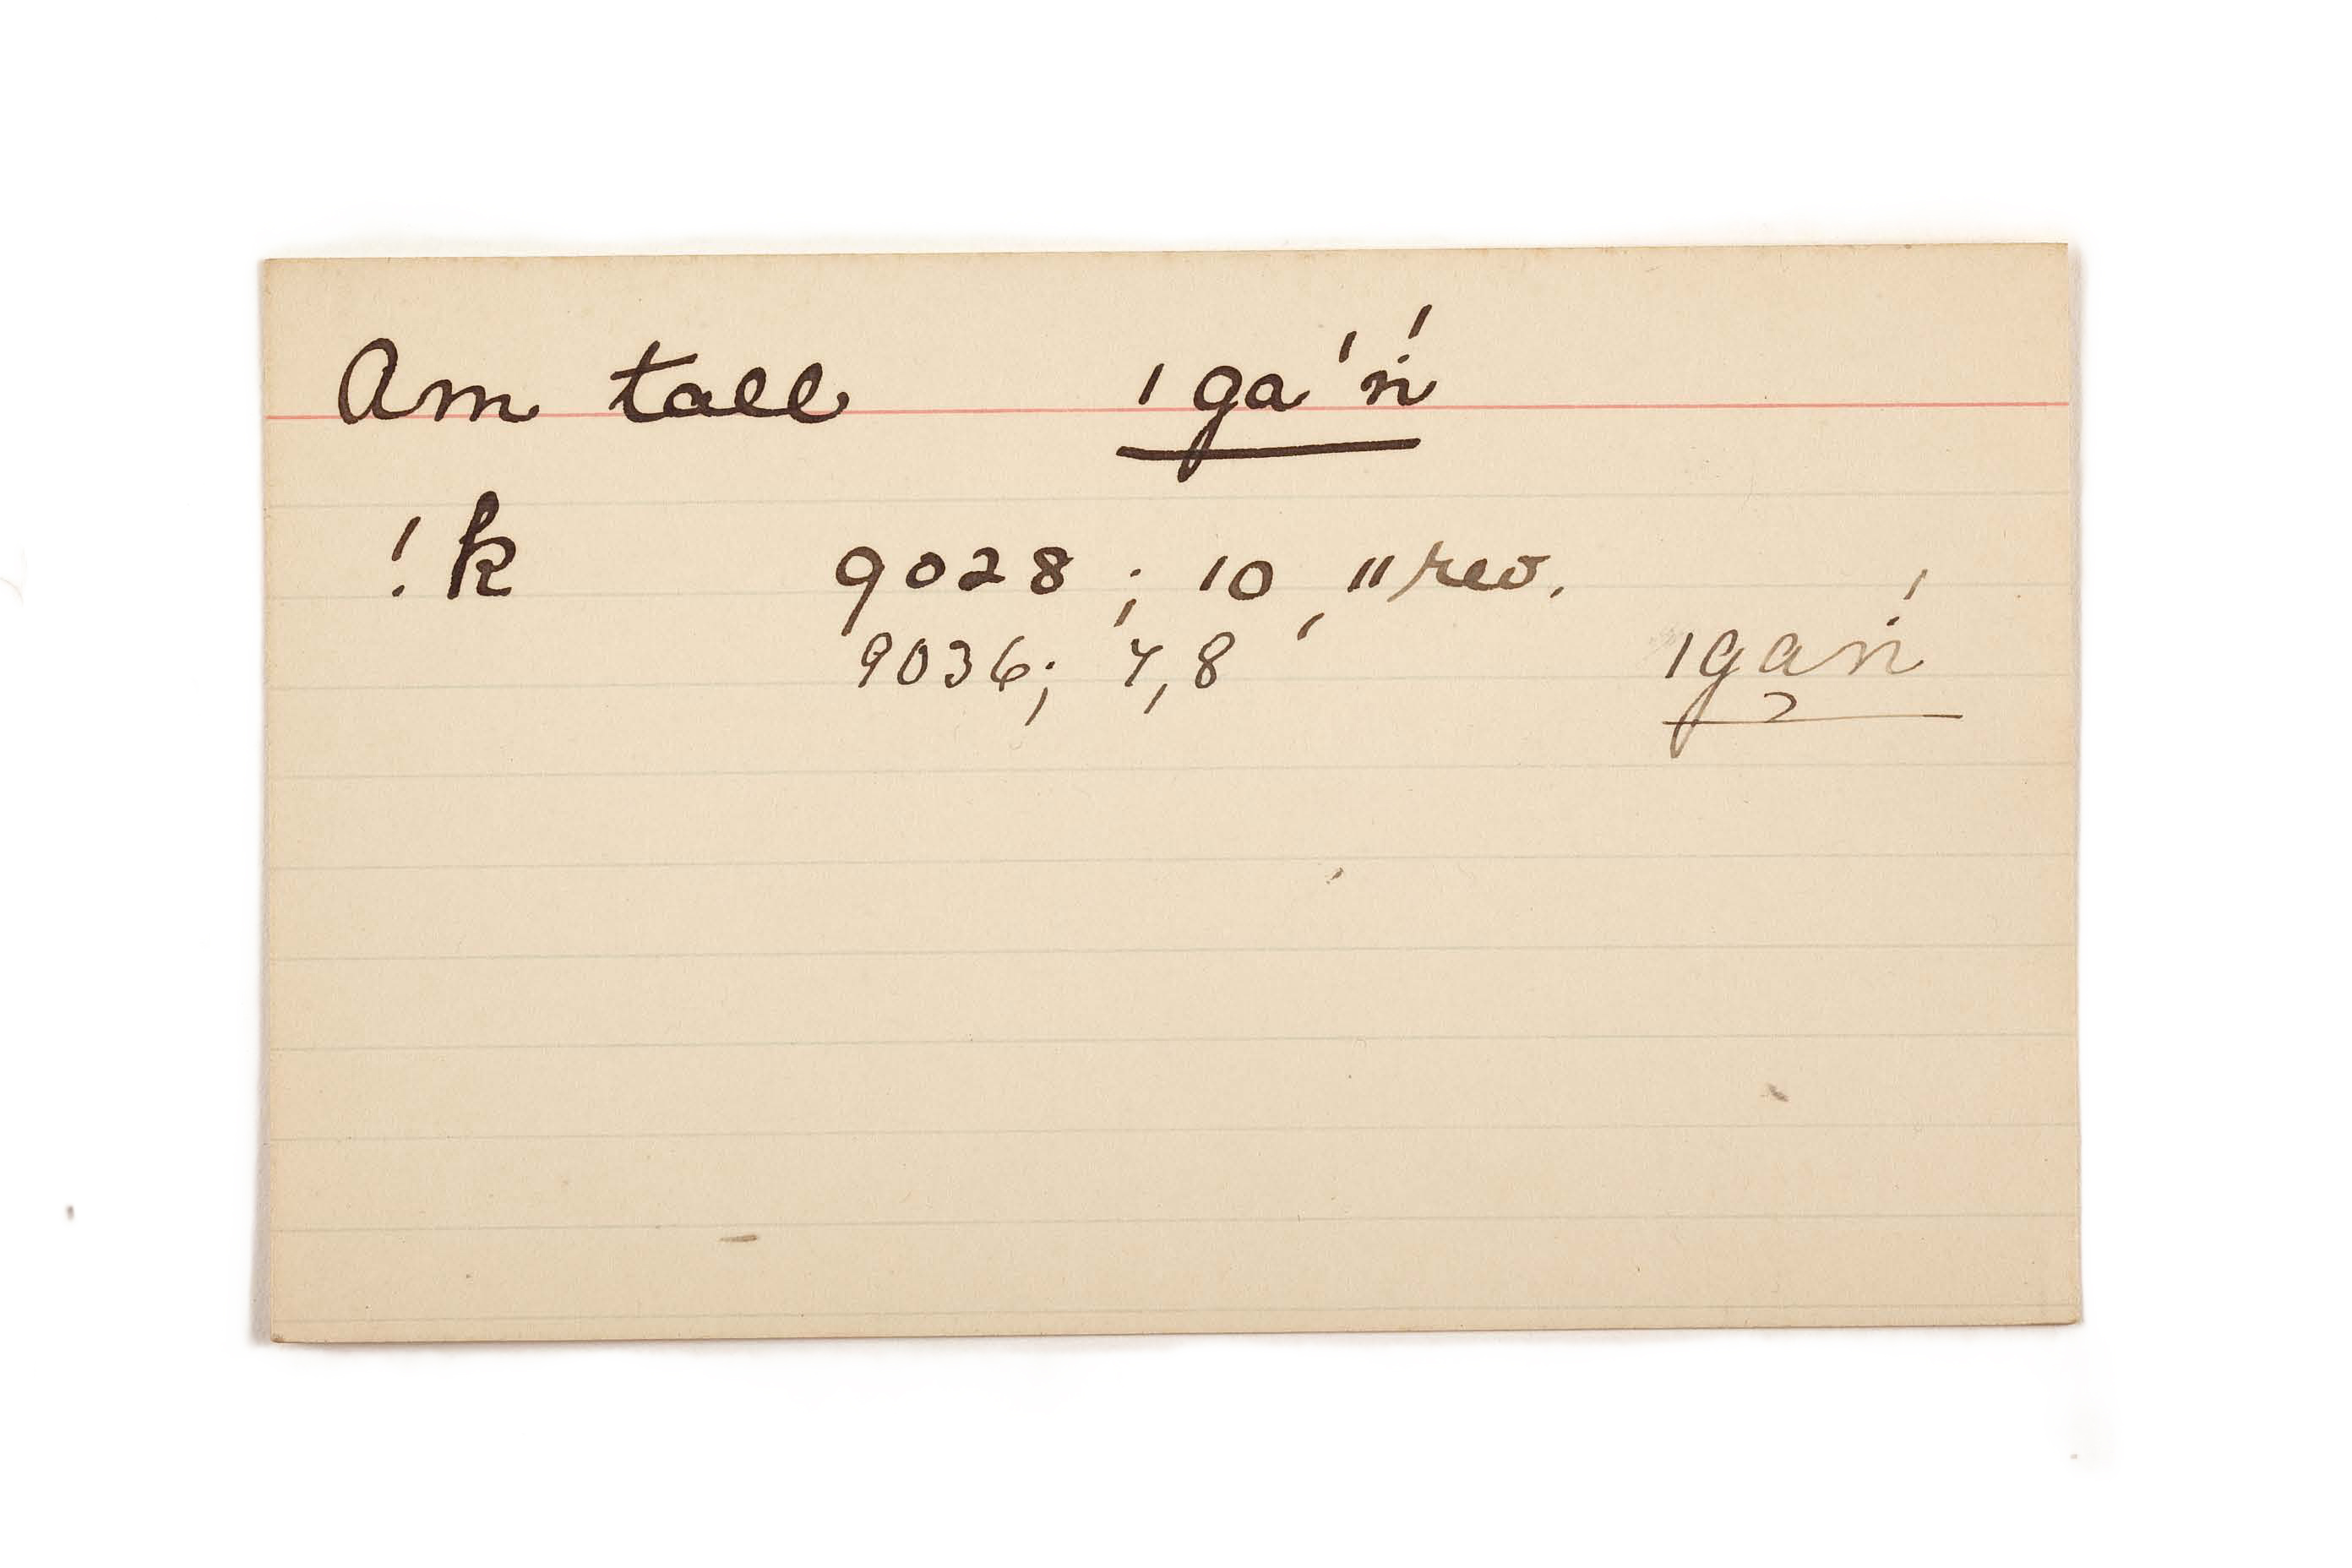 Am tall ǀga'ṅ́
!k 9028; 10, 11 rev.
9036; 7, 8 ǀgaṅ́